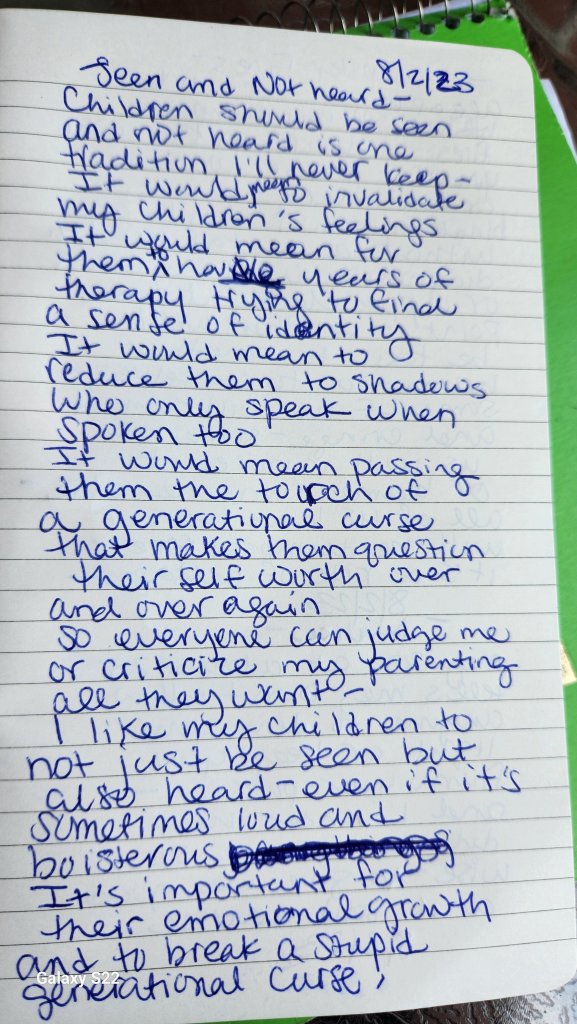 8/2/23
Seen and Not heard-
Children should be seen
and not heard is one
tradition I'll never keep-
It would mean to invalidate
my children's feelings
It would mean for
them to have years of
therapy trying to find
a sense of identity
It would mean to
reduce them to shadows
who only speak when
spoken too
It would mean passing
them the torch of
a generational curse
that makes them question
their self worth over
and over again
So everyone can judge me
or criticize my parenting
all they want-
I like my children to
not just be seen but
also heard-even if it's
sometimes loud and
boisterous
It's important for
their emotional growth
and to break a stupid
generational curse,
Galaxy S22